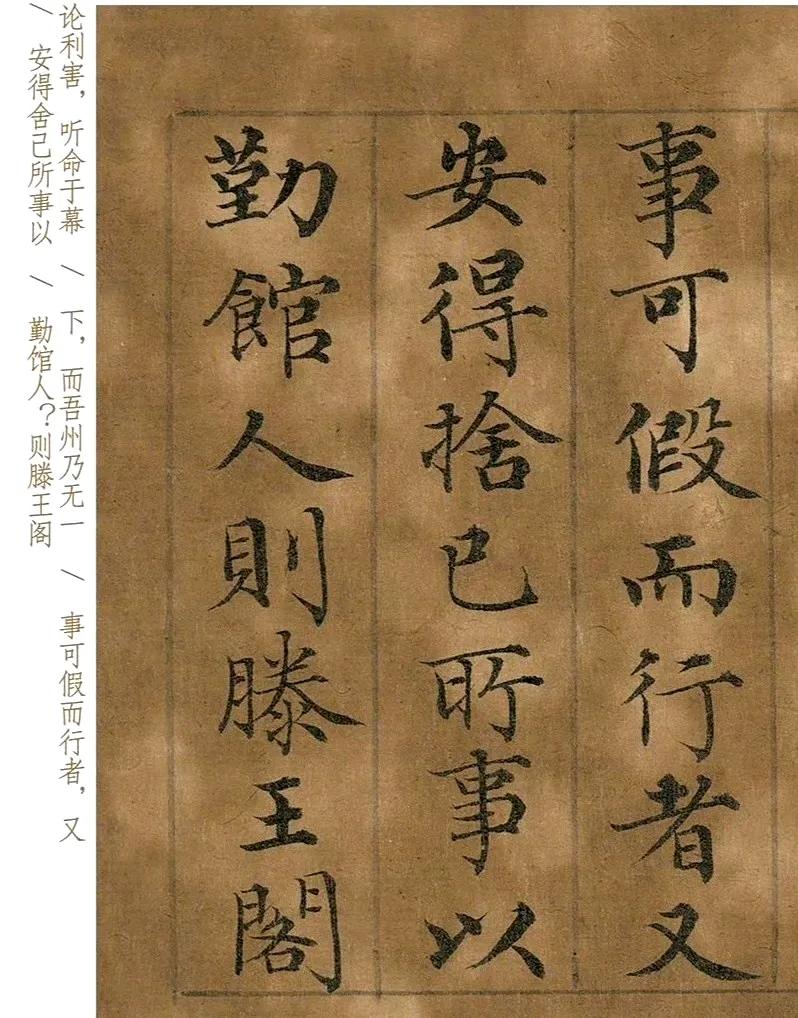 事可假而行者又
安得捨己所事以
勤館人則滕王閣
论利害，听命于幕 \ 下，而吾州乃无一 \ 事可假而行者，又
\ 安得舍己所事以 \ 勤馆人？则滕王阁